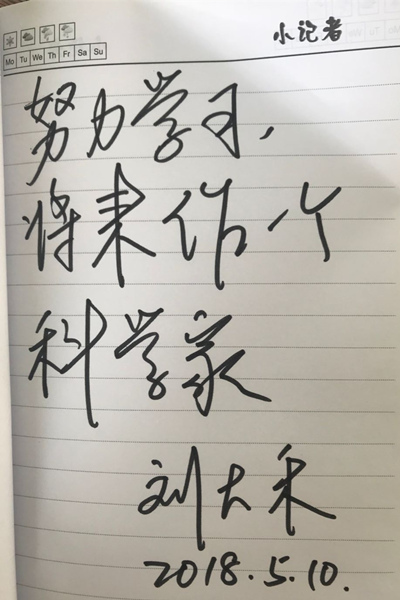 小记者
Mo Tu We Th Fr Sa Su
努力学习,
将来作一个
科学家
刘大禾
2018.5.10.